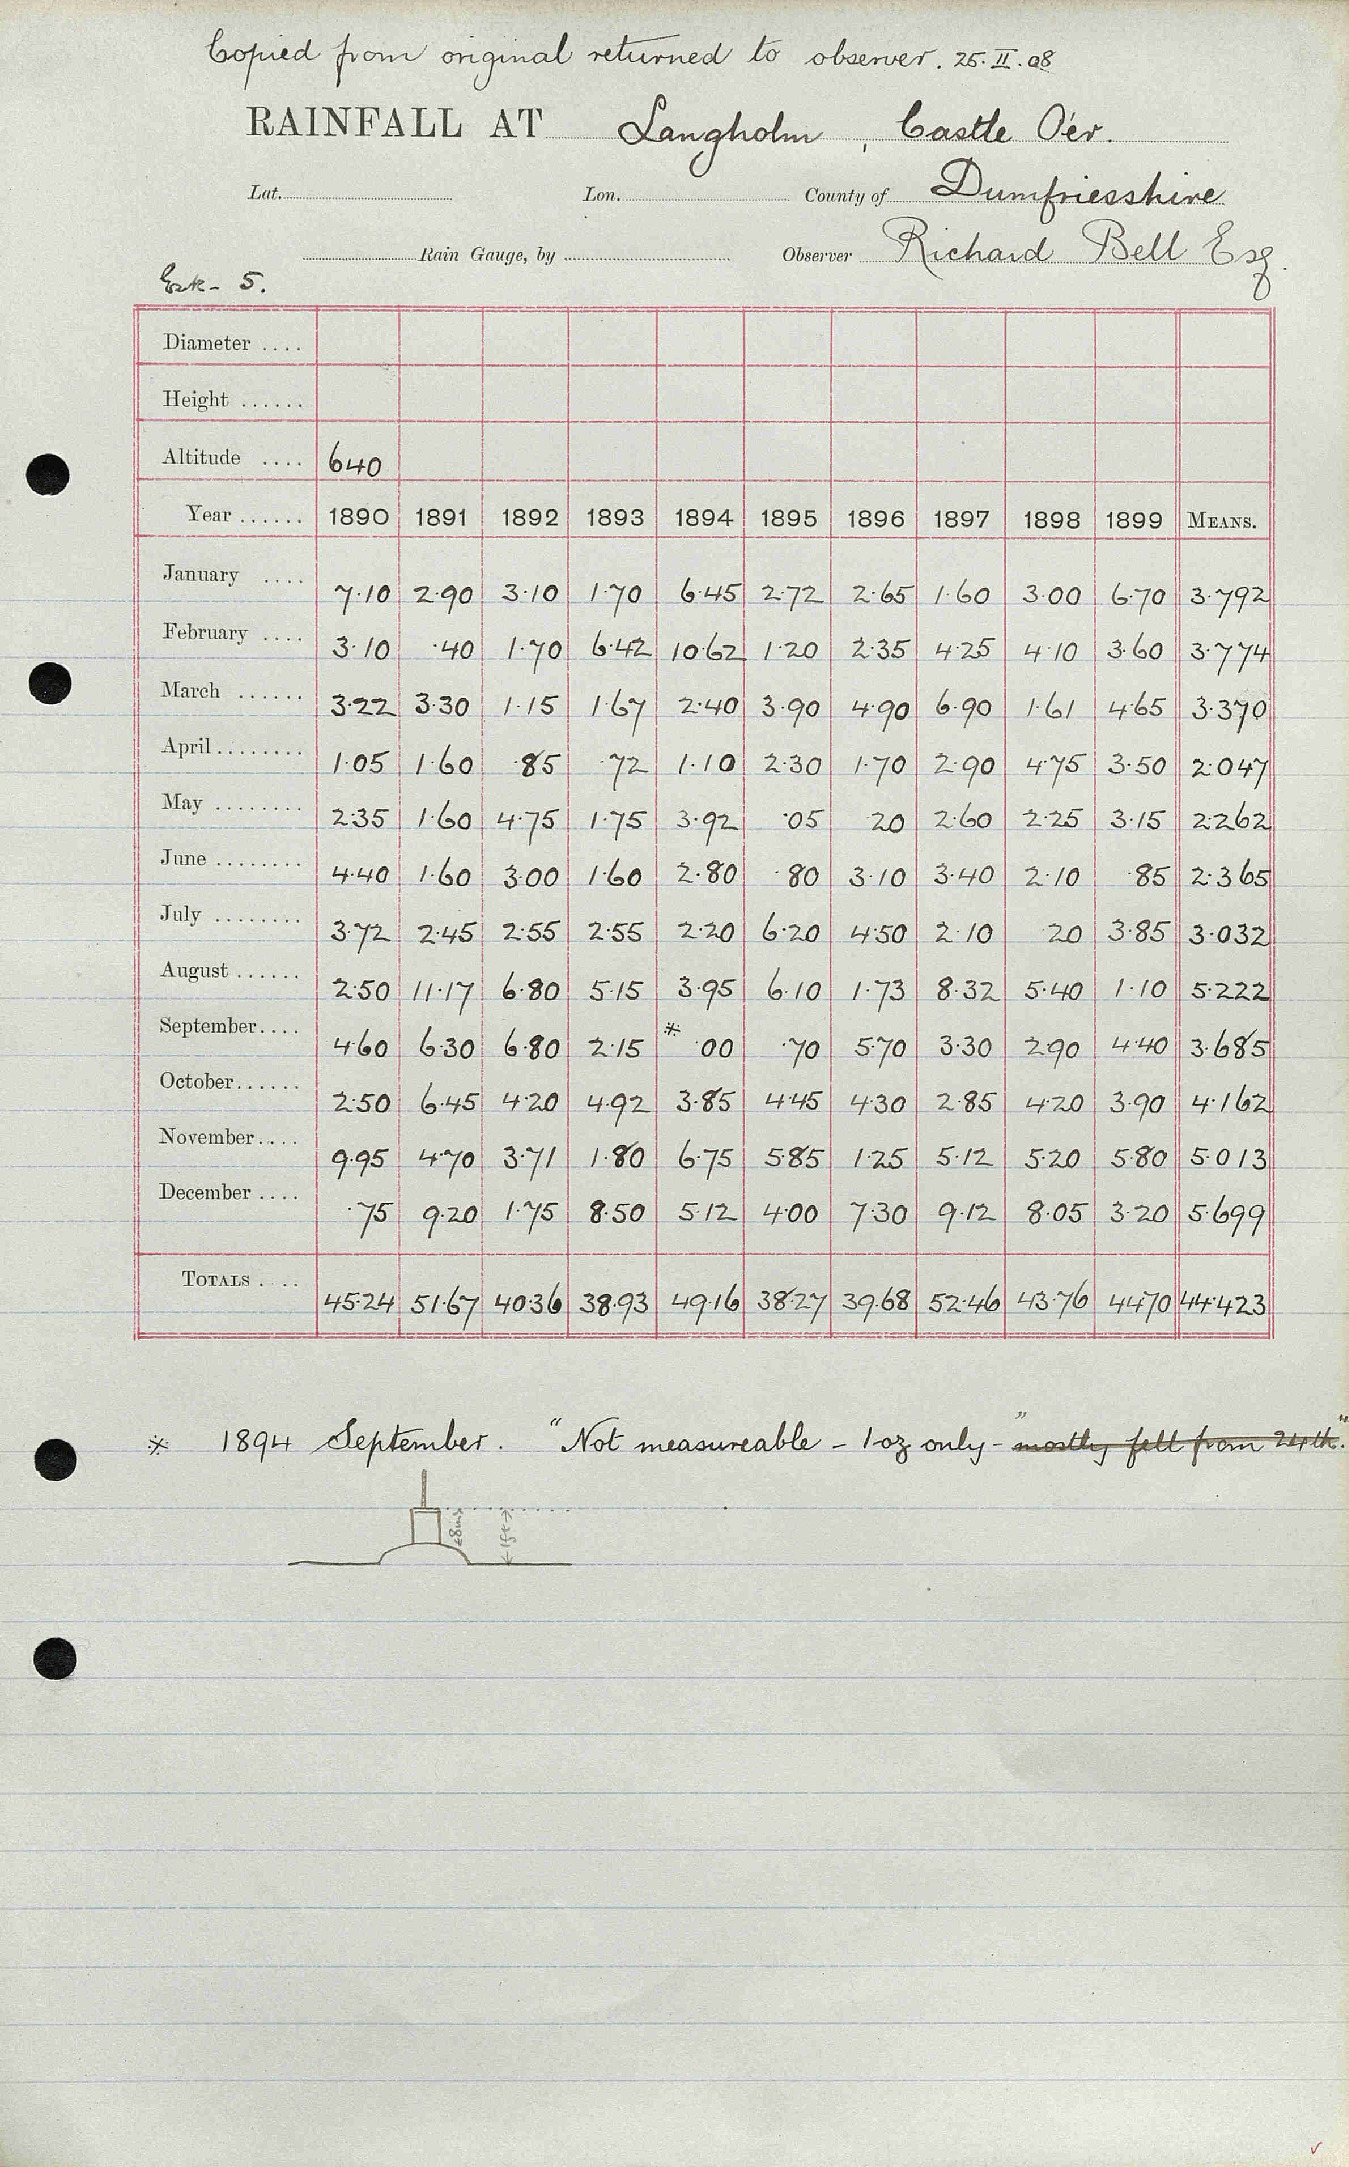 Copied from original returned to observer. 25.II.08
RAINFALL AT Langholm, Castle O'er.
Lat. Lon. County of Dumfriesshire
Rain Gauge, by Observer Richard Bell Esq.
Esk - 5.
Diameter ....
Height ......
Altitude .... 640
Year ...... 1890 1891 1892 1893 1894 1895 1896 1897 1898 1899 MEANS.
January .... 7.10 2.90 3.10 1.70 6.45 2.72 2.65 1.60 3.00 6.70 3.792
February .... 3.10 .40 1.70 6.42 10.62 1.20 2.35 4.25 4.10 3.60 3.774
March ...... 3.22 3.30 1.15 1.67 2.40 3.90 4.90 6.90 1.61 4.65 3.370
April ........ 1.05 1.60 .85 .72 1.10 2.30 1.70 2.90 4.75 3.50 2.047
May ........ 2.35 1.60 4.75 1.75 3.92 .05 20 2.60 2.25 3.15 2.262
June ........ 4.40 1.60 3.00 1.60 2.80 .80 3.10 3.40 2.10 .85 2.365
July ........ 3.72 2.45 2.55 2.55 2.20 6.20 4.50 2.10 .20 3.85 3.032
August ...... 2.50 11.17 6.80 5.15 3.95 6.10 1.73 8.32 5.40 1.10 5.222
September.... 4.60 6.30 6.80 2.15 * .00 .70 5.70 3.30 2.90 4.40 3.685
October...... 2.50 6.45 4.20 4.92 3.85 4.45 4.30 2.85 4.20 3.90 4.162
November.... 9.95 4.70 3.71 1.80 6.75 5.85 1.25 5.12 5.20 5.80 5.013
December .... .75 9.20 1.75 8.50 5.12 4.00 7.30 9.12 8.05 3.20 5.699
TOTALS .... 45.24 51.67 40.36 38.93 49.16 38.27 39.68 52.46 43.76 44.70 44.423
* 1894 September. "Not measureable - 1 oz only -" mostly fell from 24th."
8ins 1ft